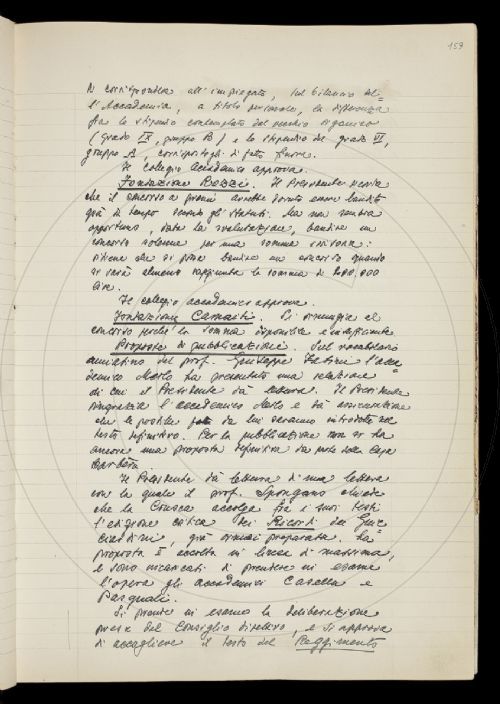 159
di corrispondere all'impiegato, sul bilancio del=
l'Accademia, a titolo personale, la differenza
fra lo stipendio contemplato dal vecchio organico
(grado IX, gruppo B) e lo stipendio del grado VI,
gruppo A, corrispostogli di fatto finora.
Il collegio accademico approva.
Fondazione Rezzi. Il Presidente
che il concorso a premi avrebbe dovuto essere bandito
già di tempo secondo gli statuti. Ma non sembra
opportuno, data la svalutazione, bandire un
concorso solenne per una somma irrisoria:
ritiene che si possa bandire un concorso quando
si sarà almeno raggiunta la somma di 200.000
lire.
Il collegio accademico approva.
Fondazione Camaiti. Si rinunzia al
concorso perché la somma disponibile è insufficiente.
Proposte di pubblicazione. Sul vocabolario
amiatino del prof. Giuseppe Fatini l'acca=
demico Merlo ha presentato una relazione
di cui il Presidente dà lettura. Il Presidente
ringrazia l'accademico Merlo e dà assicurazione
che le postille da lui saranno introdotte nel
testo definitivo. Per la pubblicazione non si ha
ancora una proposta definitiva da parte della Casa
Barbèra.
Il Presidente dà lettura di una lettera
con la quale il prof. Spongano chiede
che la Crusca accolga fra i suoi testi
l'edizione critica dei Ricordi del Guic=
ciardini, già ormai preparata. La
proposta è accolta in linea di massima,
e sono incaricati di prendere in esame
l'opera gli accademici Casella e
Pasquali.
Si prende in esame la deliberazione
presa dal Consiglio direttivo, e si approva
di accogliere il testo del Reggimento